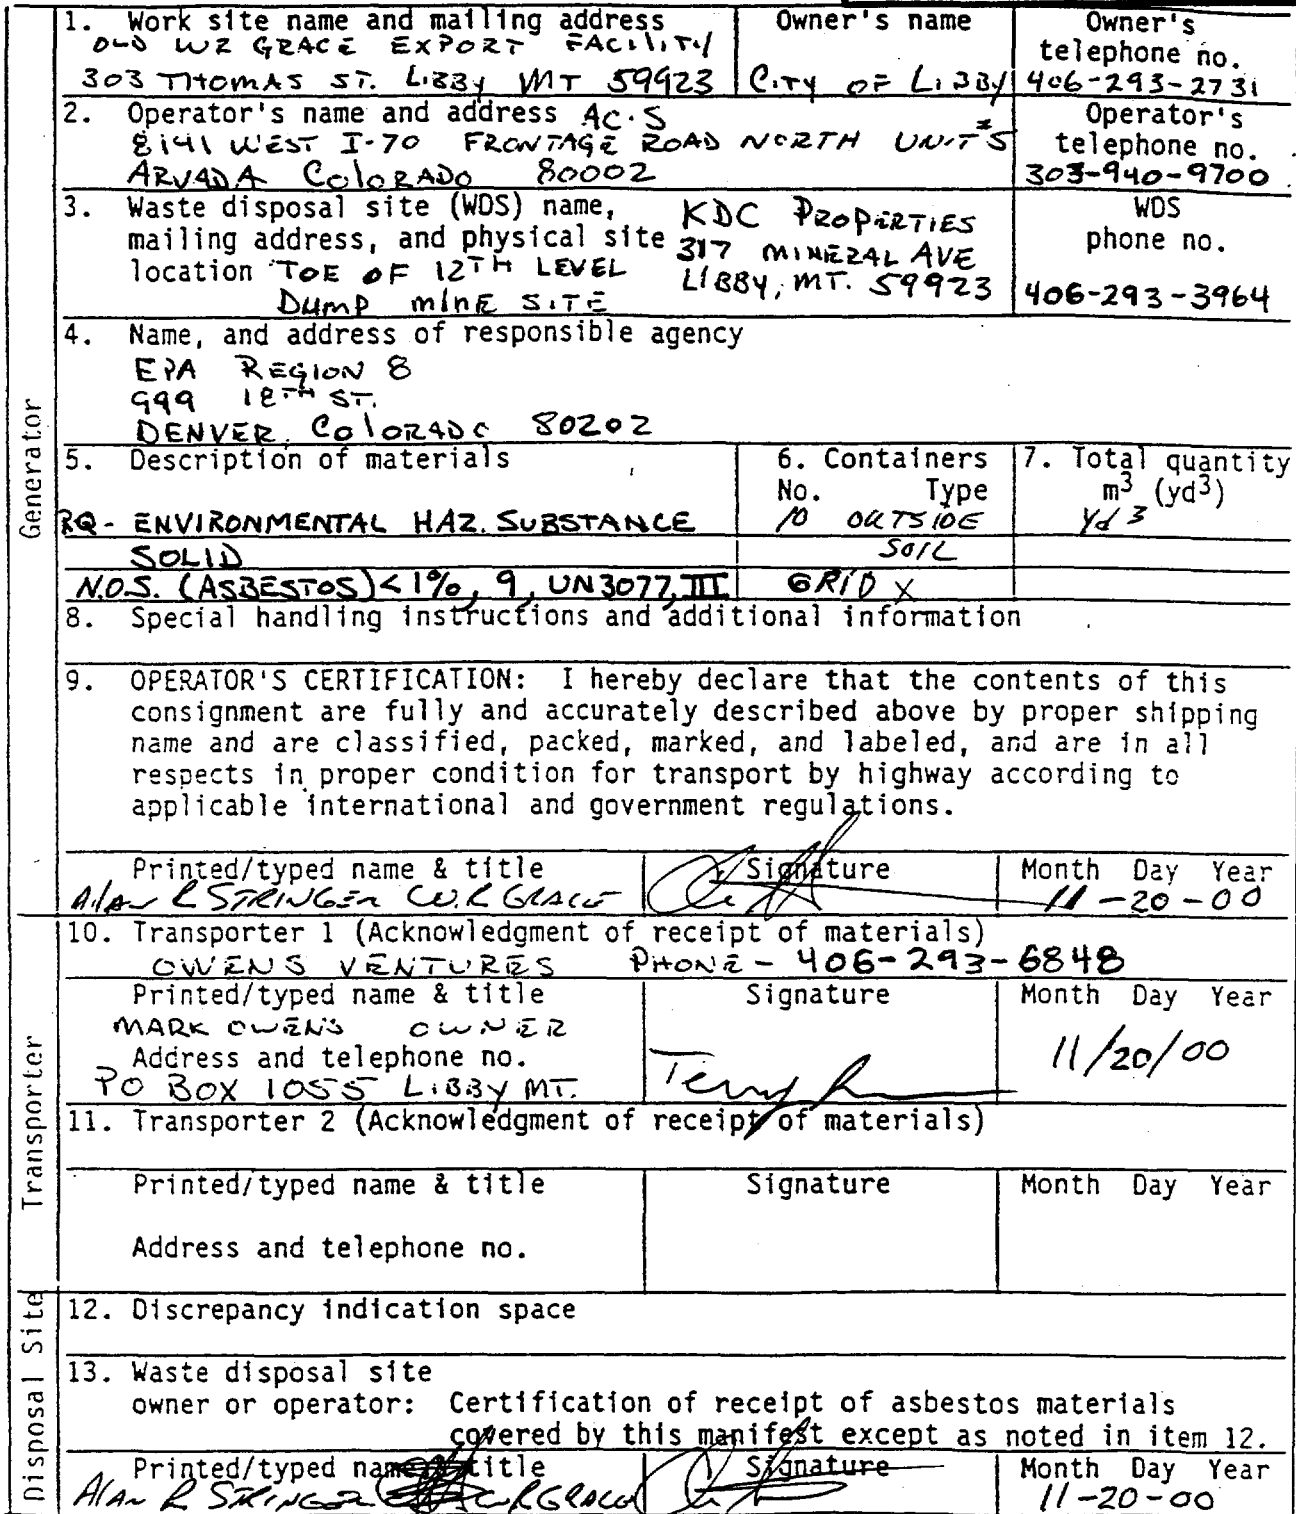 1. Work site name and mailing address
OLD WR GRACE EXPORT FACILITY
303 THOMAS ST. LIBBY MT 59923
Owner's name
CITY OF LIBBY
Owner's
telephone no.
406-293-2731
2. Operator's name and address AC·S
8141 WEST I-70 FRONTAGE ROAD NORTH UNIT #5
ARVADA COLORADO 80002
Operator's
telephone no.
303-940-9700
3. Waste disposal site (WDS) name,
mailing address, and physical site
location TOE OF 12TH LEVEL
DUMP MINE SITE
KDC PROPERTIES
317 MINERAL AVE
LIBBY, MT. 59923
WDS
phone no.
406-293-3964
4. Name, and address of responsible agency
EPA REGION 8
999 18TH ST.
DENVER, COLORADO 80202
Generator
5. Description of materials
6. Containers
No. Type
7. Total quantity
m3 (yd3)
RQ- ENVIRONMENTAL HAZ. SUBSTANCE
10 OUTSIDE
Yd 3
SOLID
SOIL
N.O.S. (ASBESTOS) < 1%, 9, UN3077, III
GRID X
8. Special handling instructions and additional information
9. OPERATOR'S CERTIFICATION: I hereby declare that the contents of this
consignment are fully and accurately described above by proper shipping
name and are classified, packed, marked, and labeled, and are in all
respects in proper condition for transport by highway according to
applicable international and government regulations.
Printed/typed name & title
Signature
Month Day Year
Alan R STRINGER W.R GRACE
11-20-00
10. Transporter 1 (Acknowledgment of receipt of materials)
OWENS VENTURES PHONE - 406-293-6848
Printed/typed name & title
Signature
Month Day Year
MARK OWENS OWNER
11/20/00
Address and telephone no.
PO BOX 1055 LIBBY MT.
Terry
Transporter
11. Transporter 2 (Acknowledgment of receipt of materials)
Printed/typed name & title
Signature
Month Day Year
Address and telephone no.
Disposal Site
12. Discrepancy indication space
13. Waste disposal site
owner or operator: Certification of receipt of asbestos materials
covered by this manifest except as noted in item 12.
Printed/typed name & title
Signature
Month Day Year
Alan R STRINGER W R GRACE
11-20-00